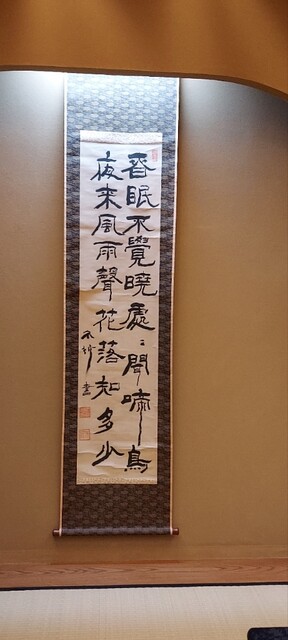 春眠不覺曉處〻聞啼鳥
夜来風雨聲花落知多少
書